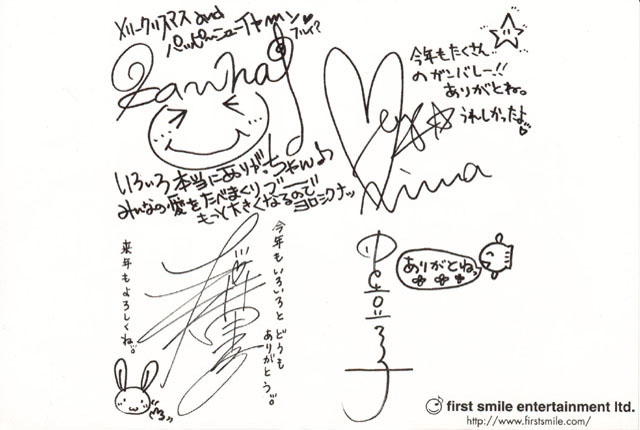 メリークリスマス and
ハッピーニューイヤーッ
フルイ?
いろいろ本当にありがとちゃん♪
みんなの愛をたべまくり
もっと大きくなるので
ヨロシクナッ
今年もたくさん
のガンバレー!!
ありがとね。
うれしかったよ
今年もいろいろと
どうも
ありがとう。
来年もよろしくね。
ありがとねっ
first smile entertainment ltd.
http://www.firstsmile.com/